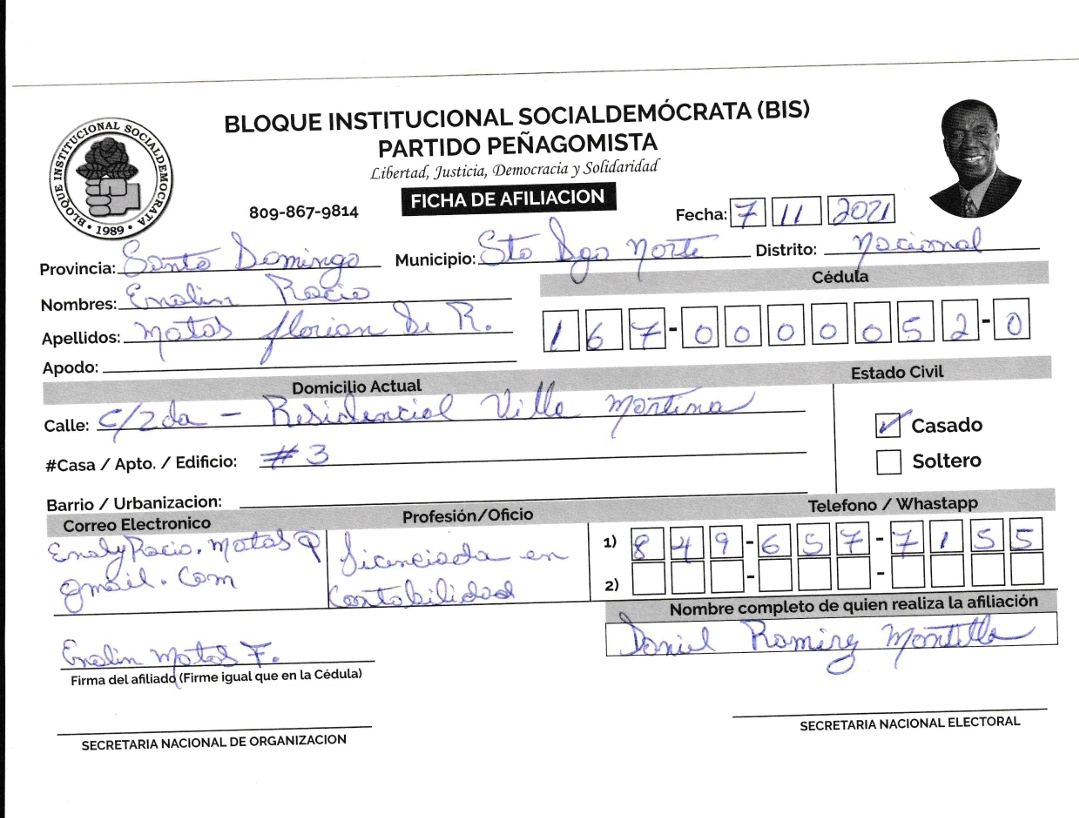 BLOQUE INSTITUCIONAL SOCIALDEMOCRATA
• 1989 •
BLOQUE INSTITUCIONAL SOCIALDEMÓCRATA (BIS)
PARTIDO PEÑAGOMISTA
Libertad, Justicia, Democracia y Solidaridad
809-867-9814
FICHA DE AFILIACION
Fecha: 7 11 2021
Provincia: Santo Domingo Municipio: Sto Dgo Norte Distrito: Nacional
Nombres: Enalin Rocio
Cédula
Apellidos: Matos florian De R.
167-0000052-0
Apodo:
Domicilio Actual
Estado Civil
Calle: c/2da - Residencial Villa Martina
Casado
#Casa / Apto. / Edificio: #3
Soltero
Barrio / Urbanizacion:
Correo Electronico
Profesión/Oficio
Telefono / Whastapp
EnalyRocio.matos@
gmail.com
Licenciada en
Contabilidad
1) 849-657-7155
2) - -
Nombre completo de quien realiza la afiliación
Daniel Ramirez Montilla
Enalin Matos F.
Firma del afiliado (Firme igual que en la Cédula)
SECRETARIA NACIONAL DE ORGANIZACION
SECRETARIA NACIONAL ELECTORAL